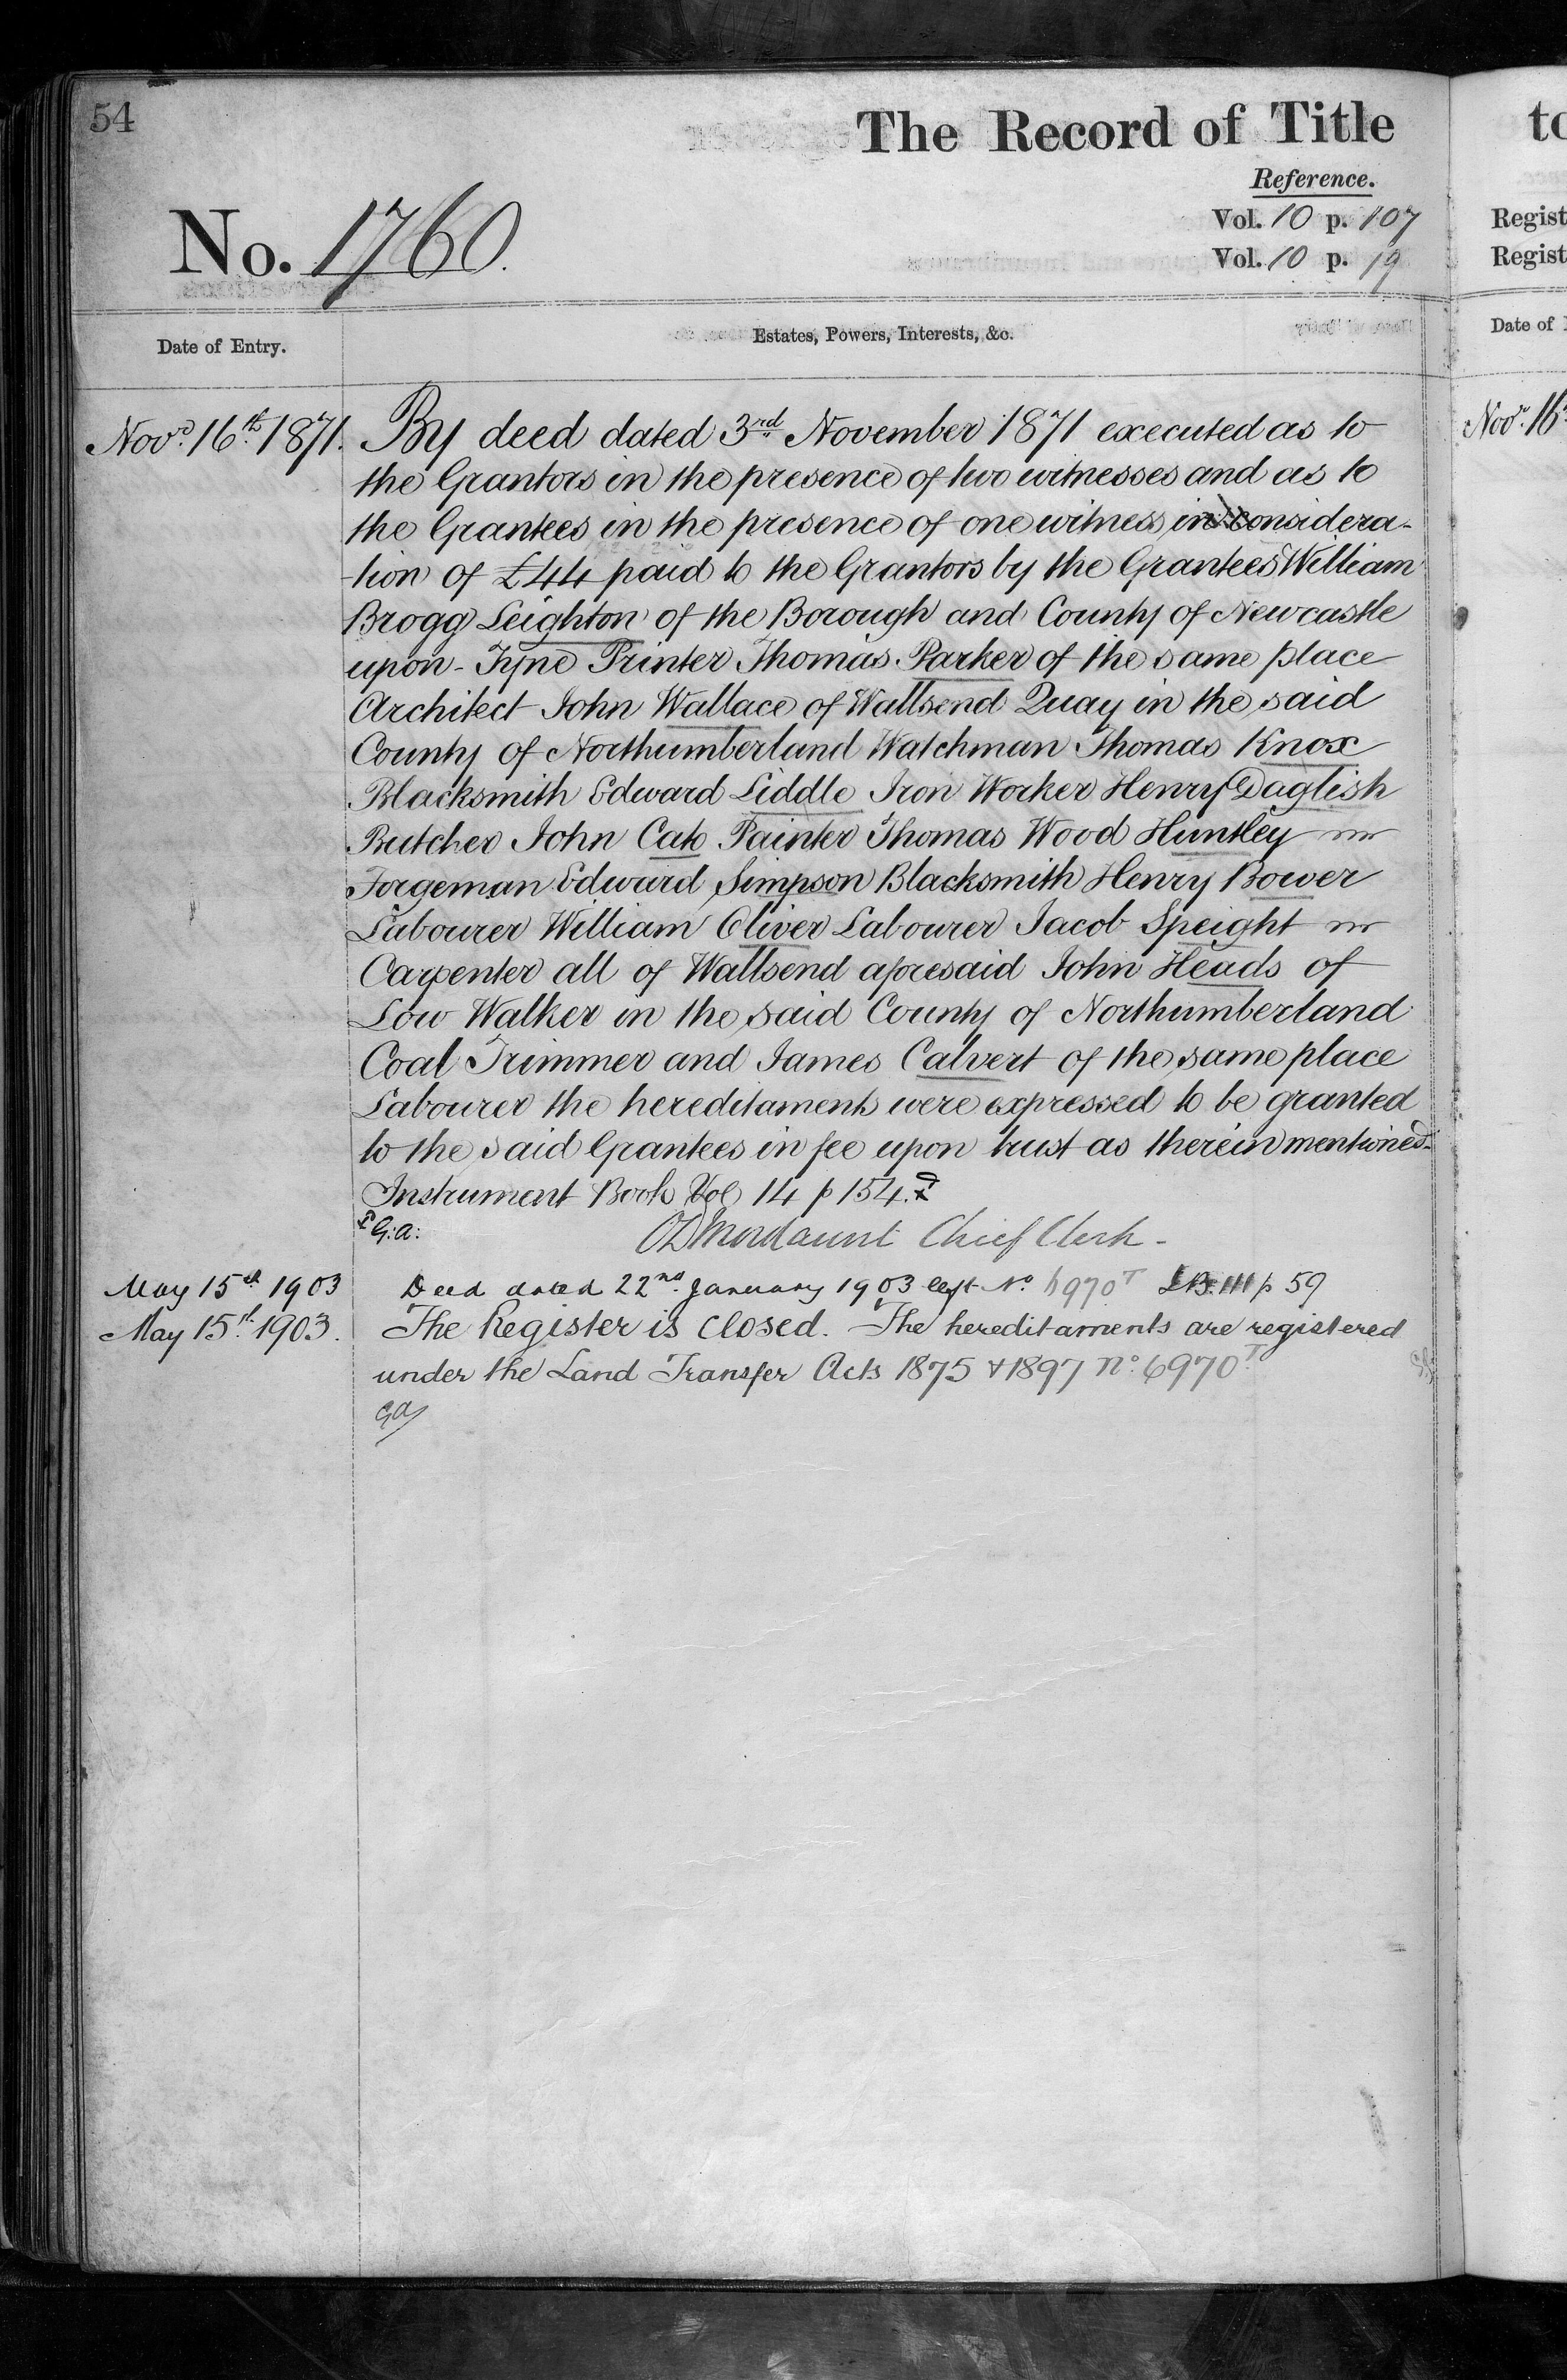 54
The Record of Title
Reference.
No. 1760.
Vol. 10 p. 107
Vol. 10 p. 19
Date of Entry.
Estates, Powers, Interests, &c.
Novr. 16th 1871. By deed dated 3rd November 1871 executed as to
the Grantors in the presence of two witnesses and as to
the Grantees in the presence of one witness in considera-
-tion of £44 paid to the Grantors by the Grantees William
Brogg Leighton of the Borough and County of Newcastle
upon-Tyne Printer Thomas Parker of the same place
Architect John Wallace of Wallsend Quay in the said
County of Northumberland Watchman Thomas Knox
Blacksmith Edward Liddle Iron Worker Henry Daglish
Butcher John Cato Painter Thomas Wood Huntley
Forgeman Edward Simpson Blacksmith Henry Bower
Labourer William Oliver Labourer Jacob Speight
Carpenter all of Wallsend aforesaid John Heads of
Low Walker in the said County of Northumberland
Coal Trimmer and James Calvert of the same place
Labourer the hereditaments were expressed to be granted
to the said Grantees in fee upon trust as therein mentioned.
Instrument Book Vol 14 p 154.
G.A.
Mordaunt Chief Clerk -
May 15th 1903 Deed dated 22nd January 1903 left No. 6970T I.B. 111 p 59
May 15th 1903. The Register is Closed. The hereditaments are registered
under the Land Transfer Acts 1875 & 1897 No. 6970T
GA
to
Regist
Regist
Date of
Novr. 16